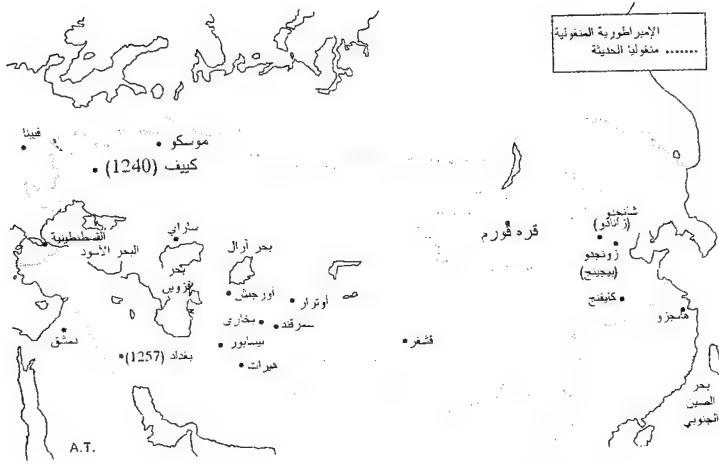 الإمبراطورية المنغولية
....... منغوليا الحديثة
فيينا
موسكو
كييف (1240)
القسطنطينية
البحر الأسود
ساراي
بحر
قزوين
بحر آرال
أورجنش
أوترار
بخارى
سمرقند
نيسابور
هيرات
دمشق
بغداد (1257)
قشغر
قره قورم
شانجدو
(زانادو)
زونجدو
(بيجينج)
كايفنج
هانجزو
بحر
الصين
الجنوبي
A.T.